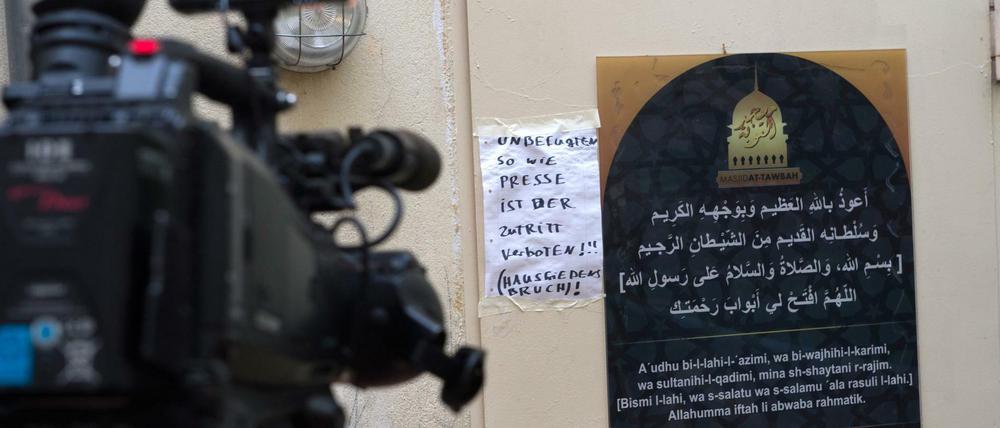 UNBEFUGTEN
SO WIE
PRESSE
IST DER
ZUTRITT
VERBOTEN!!!
(HAUSFRIEDENS
BRUCH)!
مسجد التوبة
MASJIDAT-TAWBAH
أَعوذُ بِاللهِ العَظيـمِ وَبِوَجْهِـهِ الكَرِيـم
وَسُلْطـانِه القَديـمِ مِنَ الشَّيْطـانِ الرَّجـيم
[ بِسْـمِ الله، وَالصَّلاةُ وَالسَّلامُ عَلى رَسولِ الله]
اللّهُـمَّ افْتَـحْ لي أَبْوابَ رَحْمَتـِك
A´udhu bi-l-lahi-l-´azimi, wa bi-wajhihi-l-karimi,
wa sultanihi-l-qadimi, mina sh-shaytani r-rajim.
[Bismi l-lahi, wa s-salatu wa s-salamu ´ala rasuli l-lahi.]
Allahumma iftah li abwaba rahmatik.